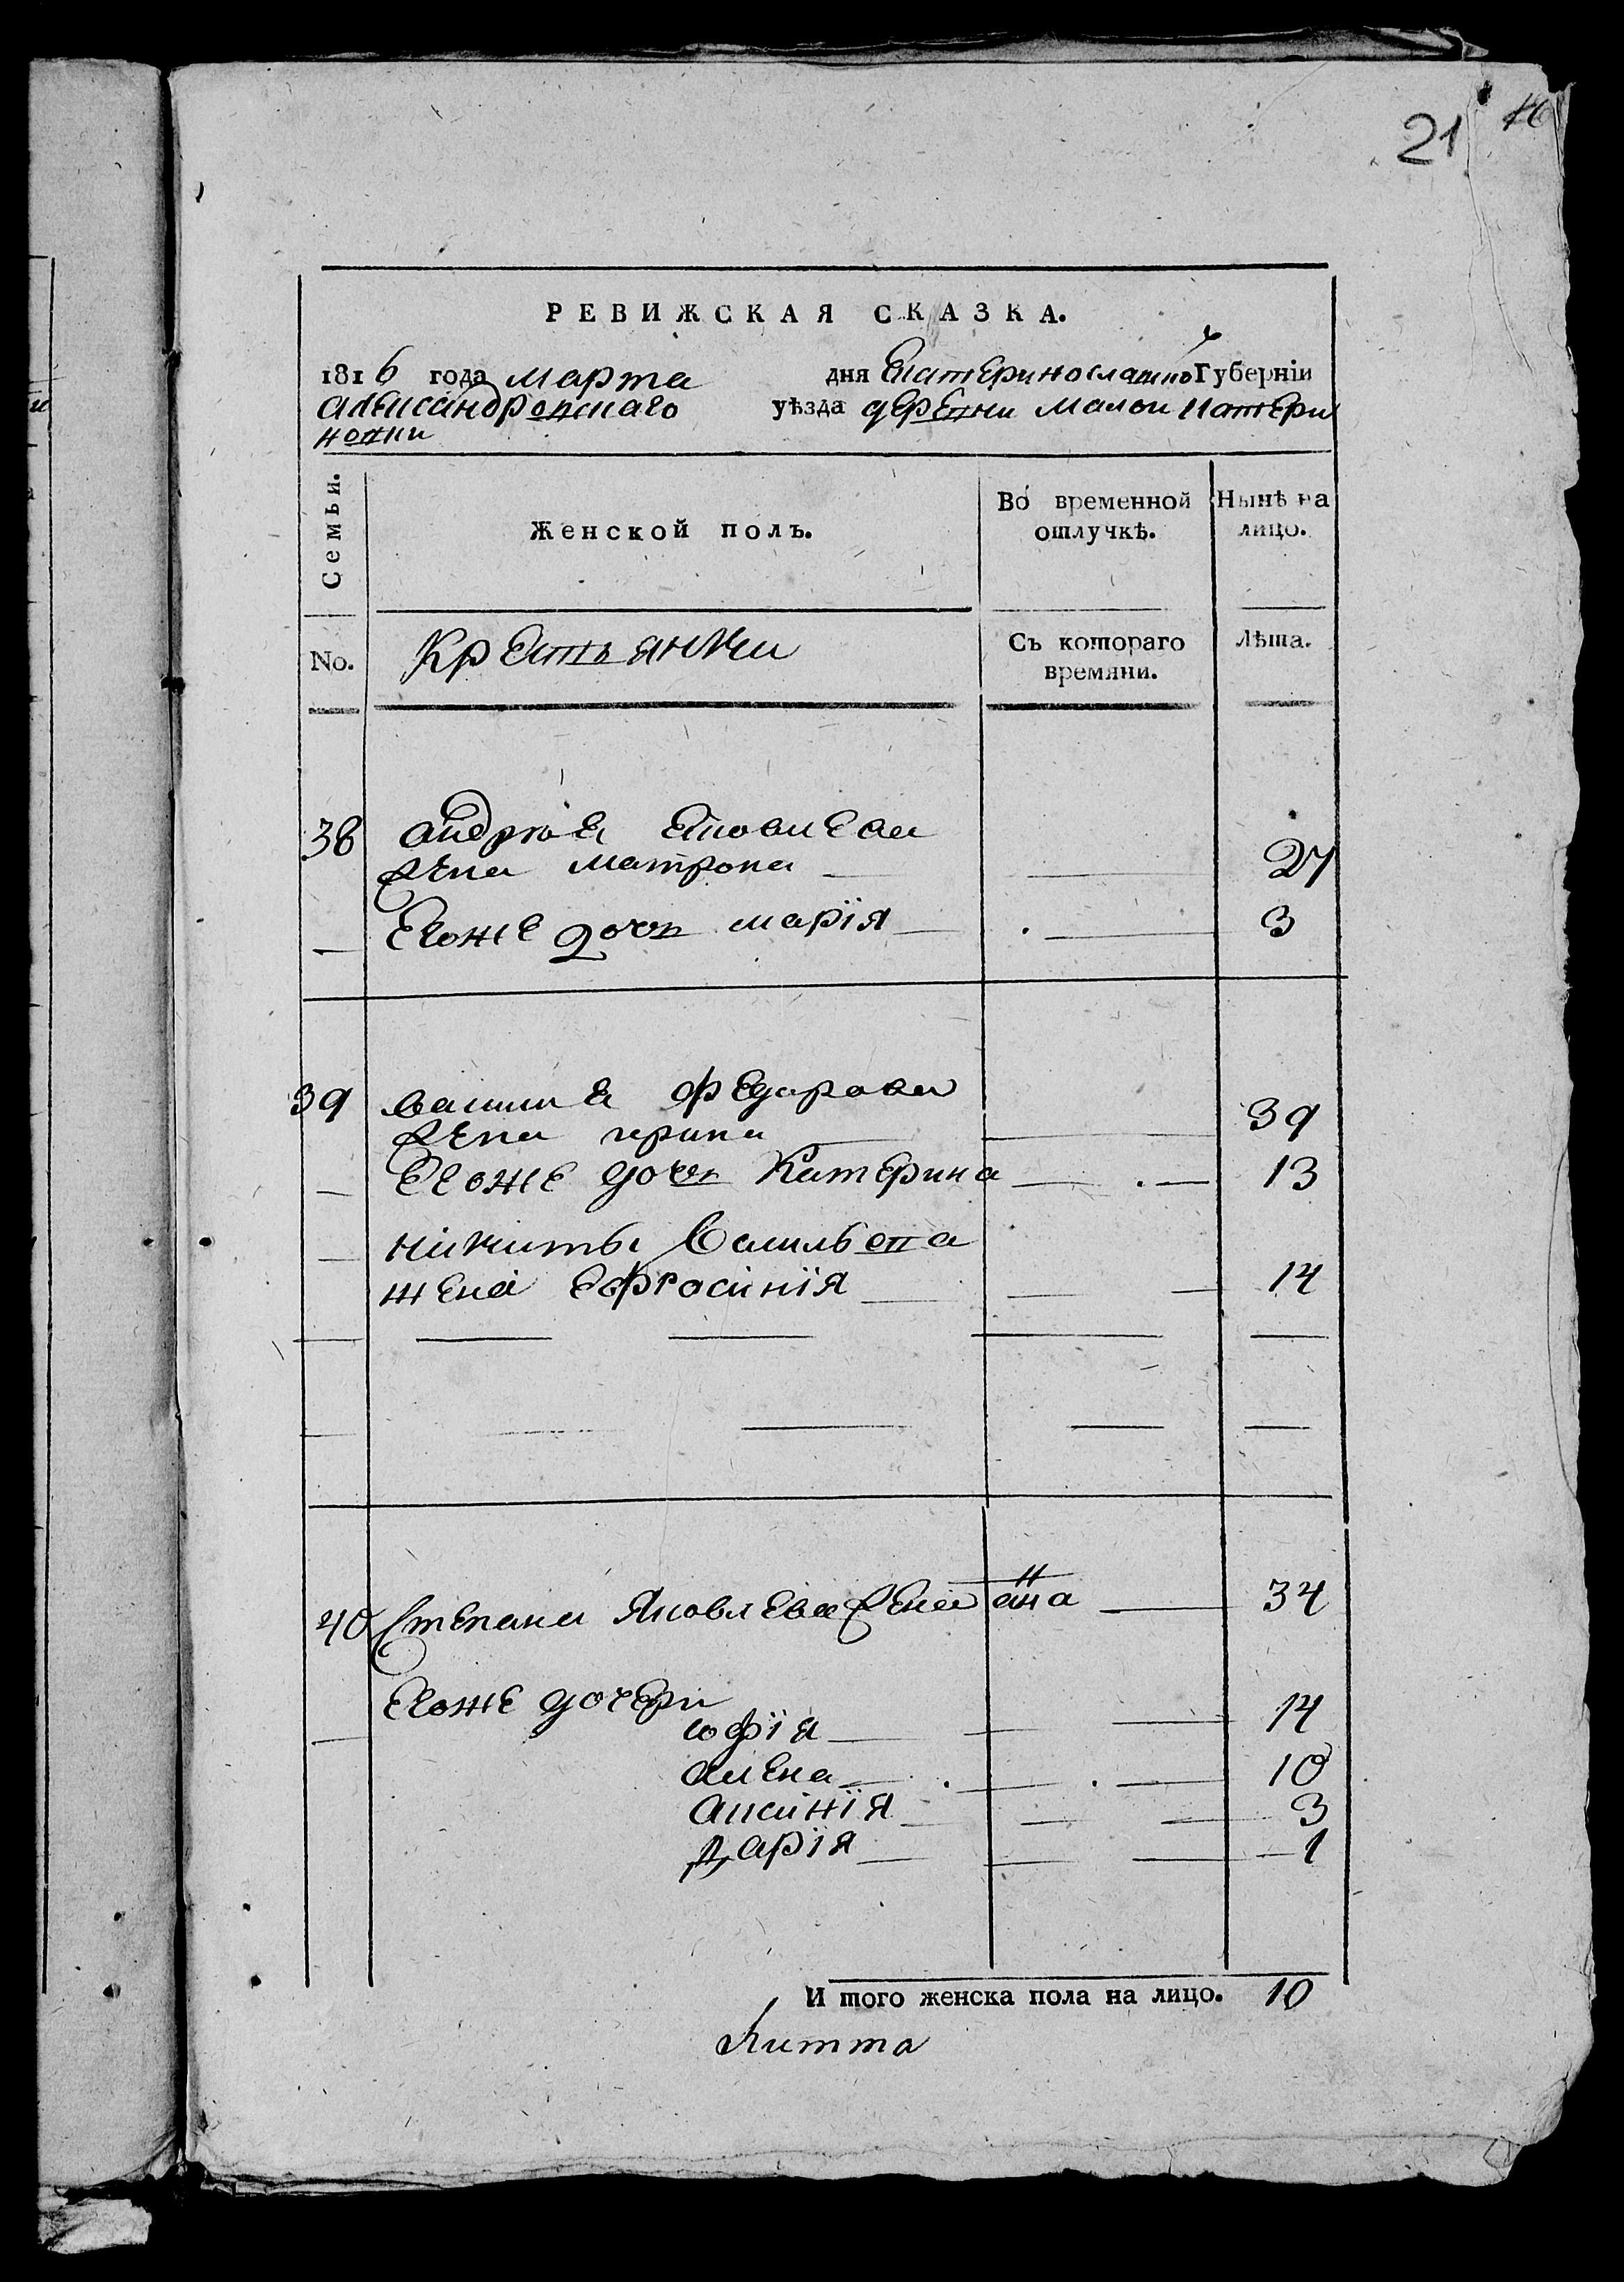 21
РЕВИЖСКАЯ СКАЗКА.
1816 года марта дня Екатеринославской Губерніи
александровскаго уѣзда деревни малой катери
новки
Семьи. Женской полъ. Во временной отлучкѣ. Нынѣ на лицо.
No. Крестьянки Съ котораго времяни. Лѣта.
38 андрея Яковлева
жена матрона 27
— Егоже дочь марїя 3
39 василия федорова
жена ирина 39
— Егоже дочь Катерина 13
— никиты Васильева
жена Ефросинїя 14
40 Степана Яковлева жена анна 34
Егоже дочери
софїя 14
алена 10
аксинїя 3
дарїя 1
И того женска пола на лицо. 10